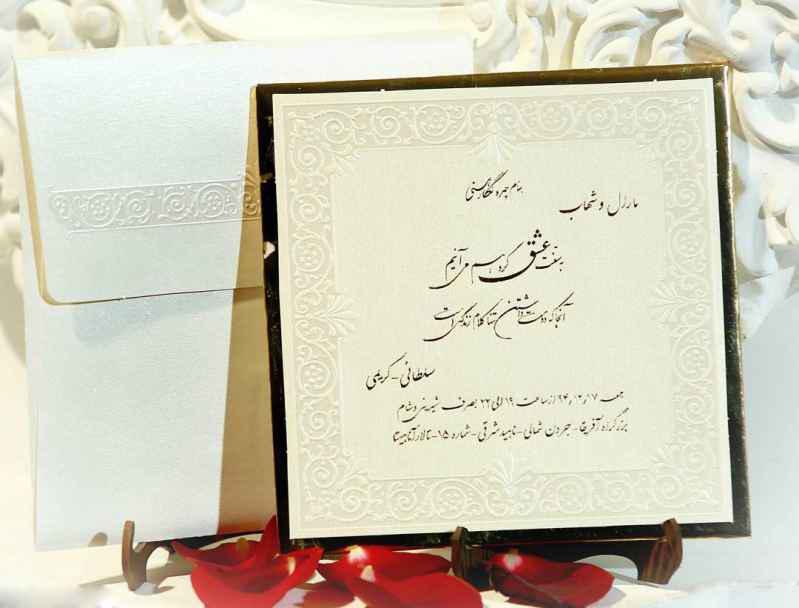 بنام چهره نگار هستی
مارال و شهاب
به سنت عشق گرد هم می آئیم
آنجا که دوست داشتن تنها کلام زندگی است
سلطانی - کریمی
جمعه ۹۴٫۱۲٫۱۷ از ساعت ۱۹ الی ۲۴ بصرف شیرینی و شام
بزرگراه آفریقا - جردن شمالی - ناهید شرقی - شماره ۱۵ - تالار آناهیتا